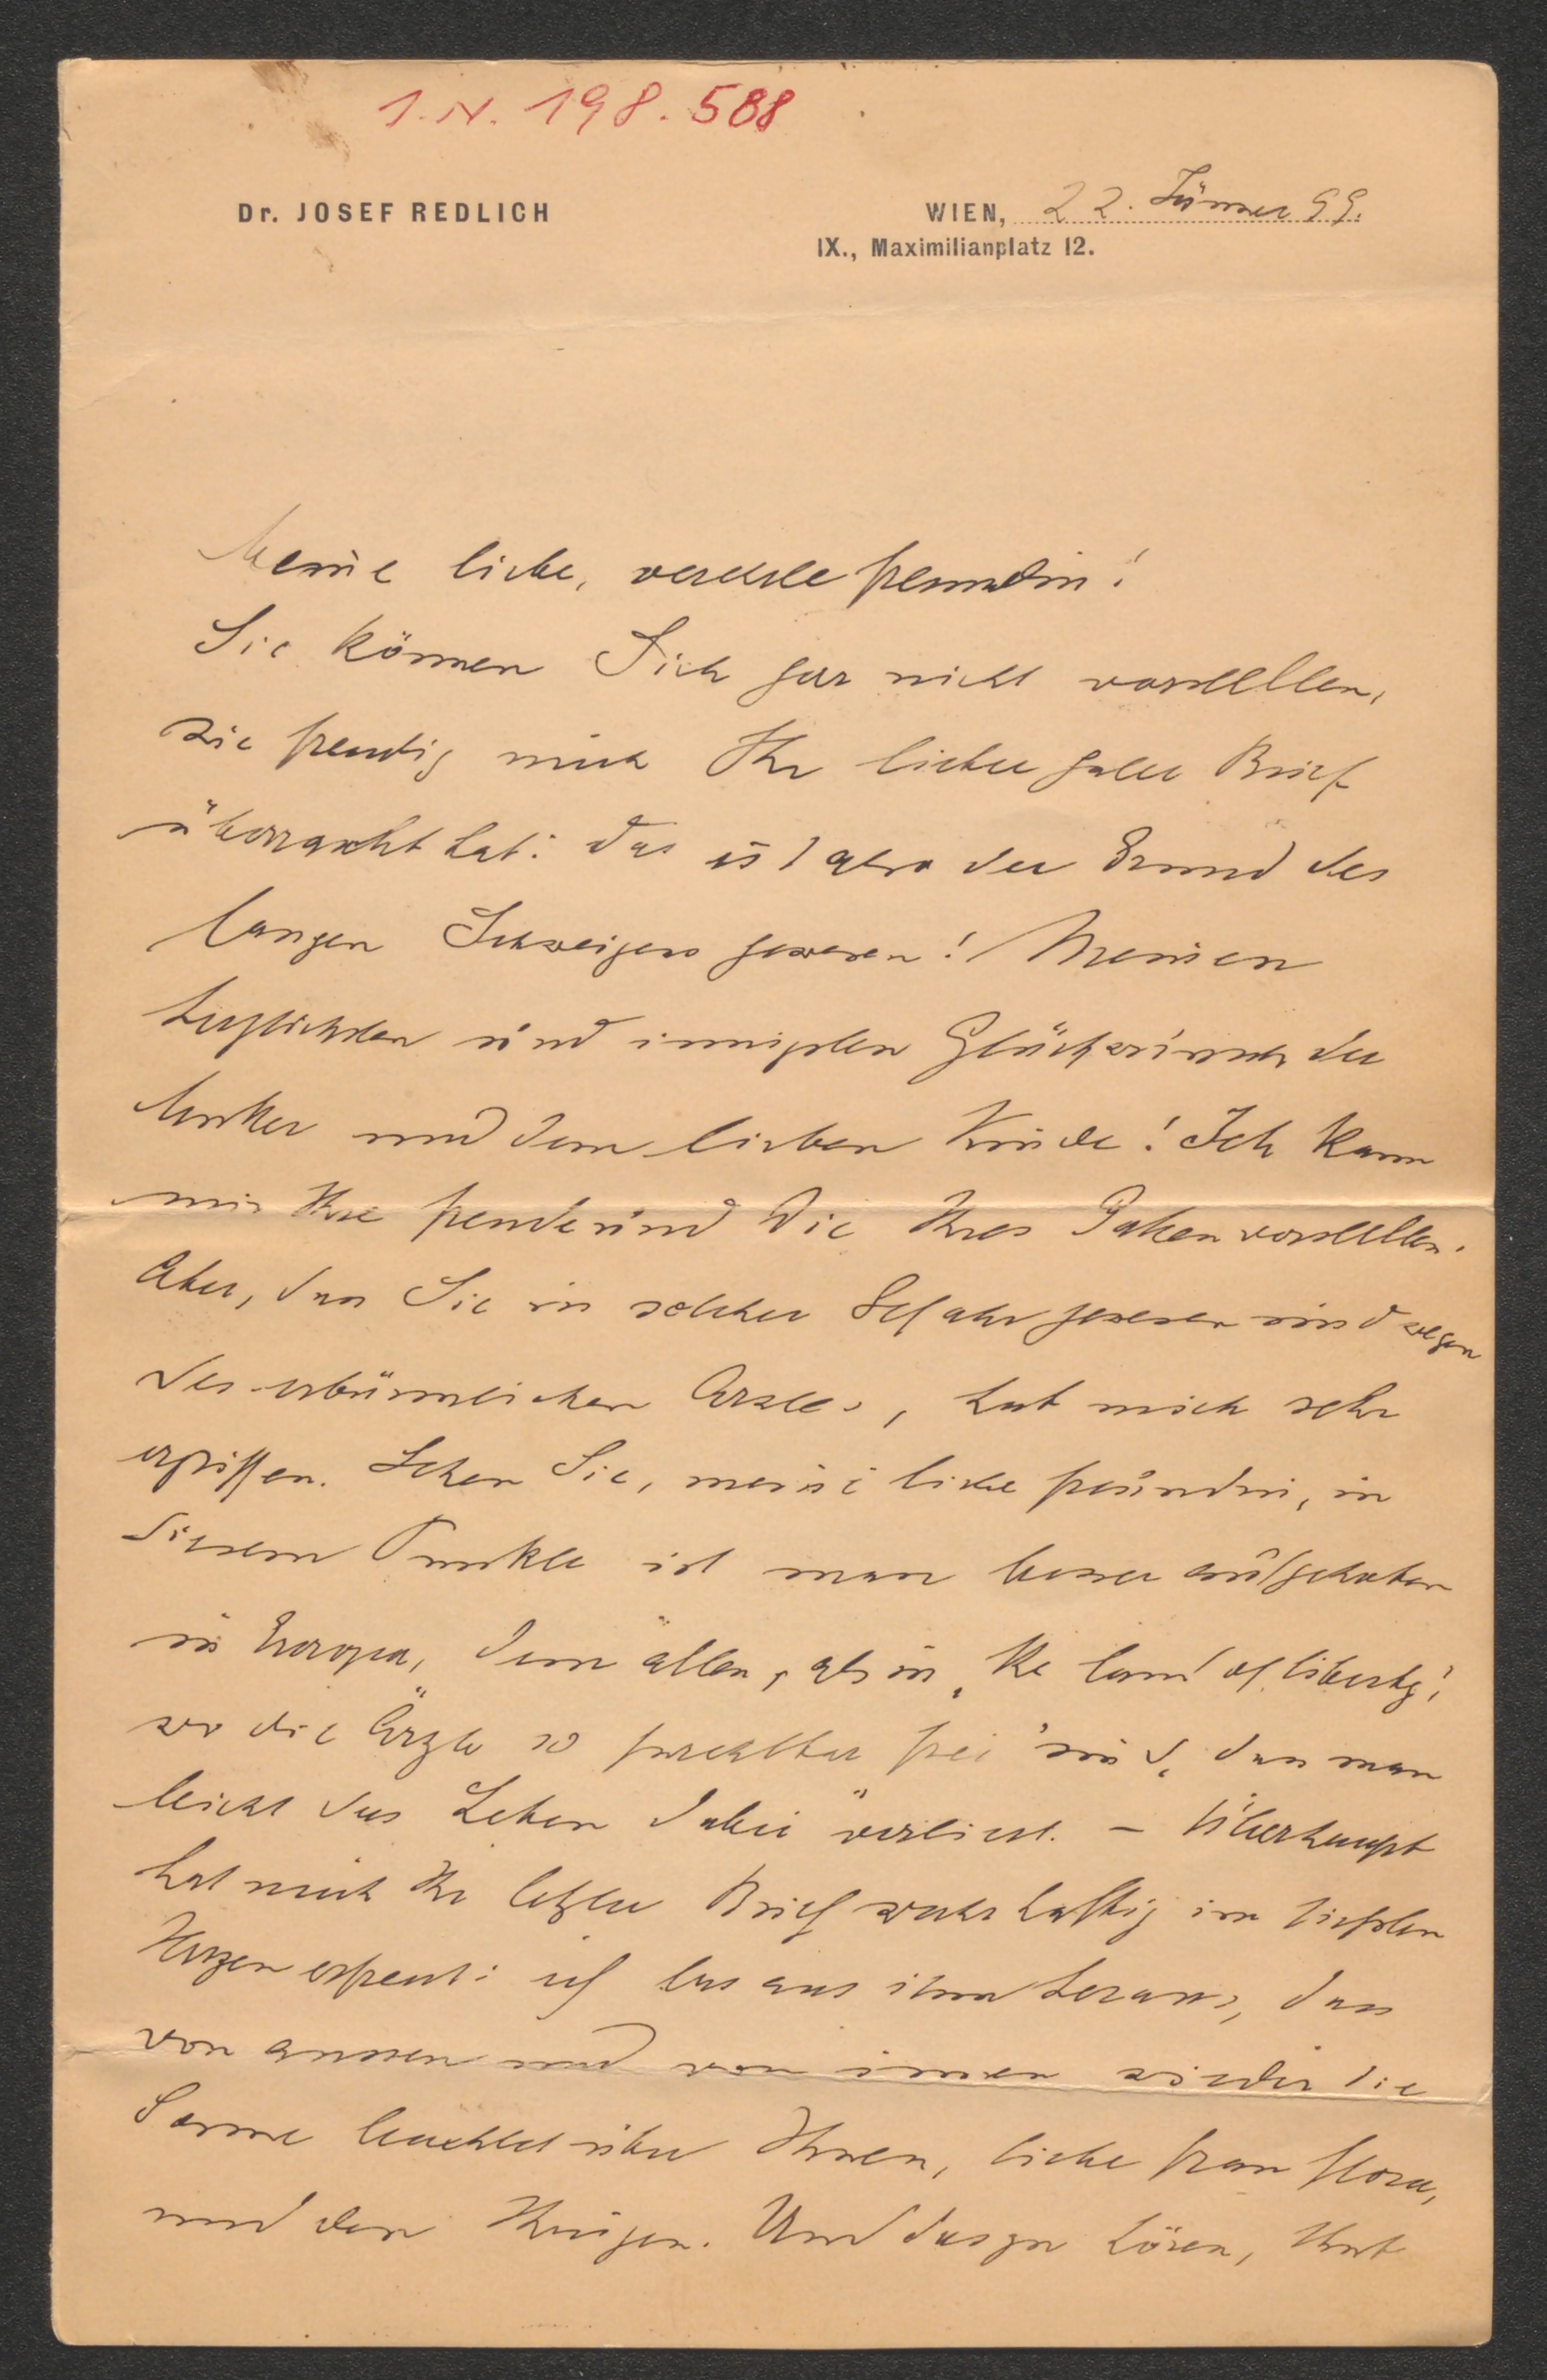 I.N. 198.588
Dr. JOSEF REDLICH
WIEN, 22. Jänner 99.
IX., Maximilianplatz 12.
Meine liebe, verehrte Freundin!
Sie können Sich gar nicht vorstellen,
wie freudig mich Ihr lieber guter Brief
überrascht hat: das ist also der Grund des
langen Schweigens gewesen! Meinen
herzlichsten und innigsten Glückwunsch der
Mutter und dem lieben Kinde! Ich kann
mir Ihre Freude und die Ihres Gatten vorstellen.
Aber, dass Sie in solcher Gefahr gewesen sind wegen
des erbärmlichen Arztes, hat mich sehr
ergriffen. Sehen Sie, meine liebe Freundin, in
diesem Punkte ist man besser aufgehoben
in Europa, dem alten, als in „the land of liberty",
wo die Ärzte so furchtbar frei sind, dass man
leicht das Leben dabei verliert. – Überhaupt
hat mich Ihr letzter Brief wahrhaftig im tiefsten
Herzen erfreut: ich las aus ihm heraus, dass
von aussen und von innen wieder die
Sonne leuchtet über Ihnen, liebe Frau Flora,
und den Ihrigen. Und das zu hören, thut